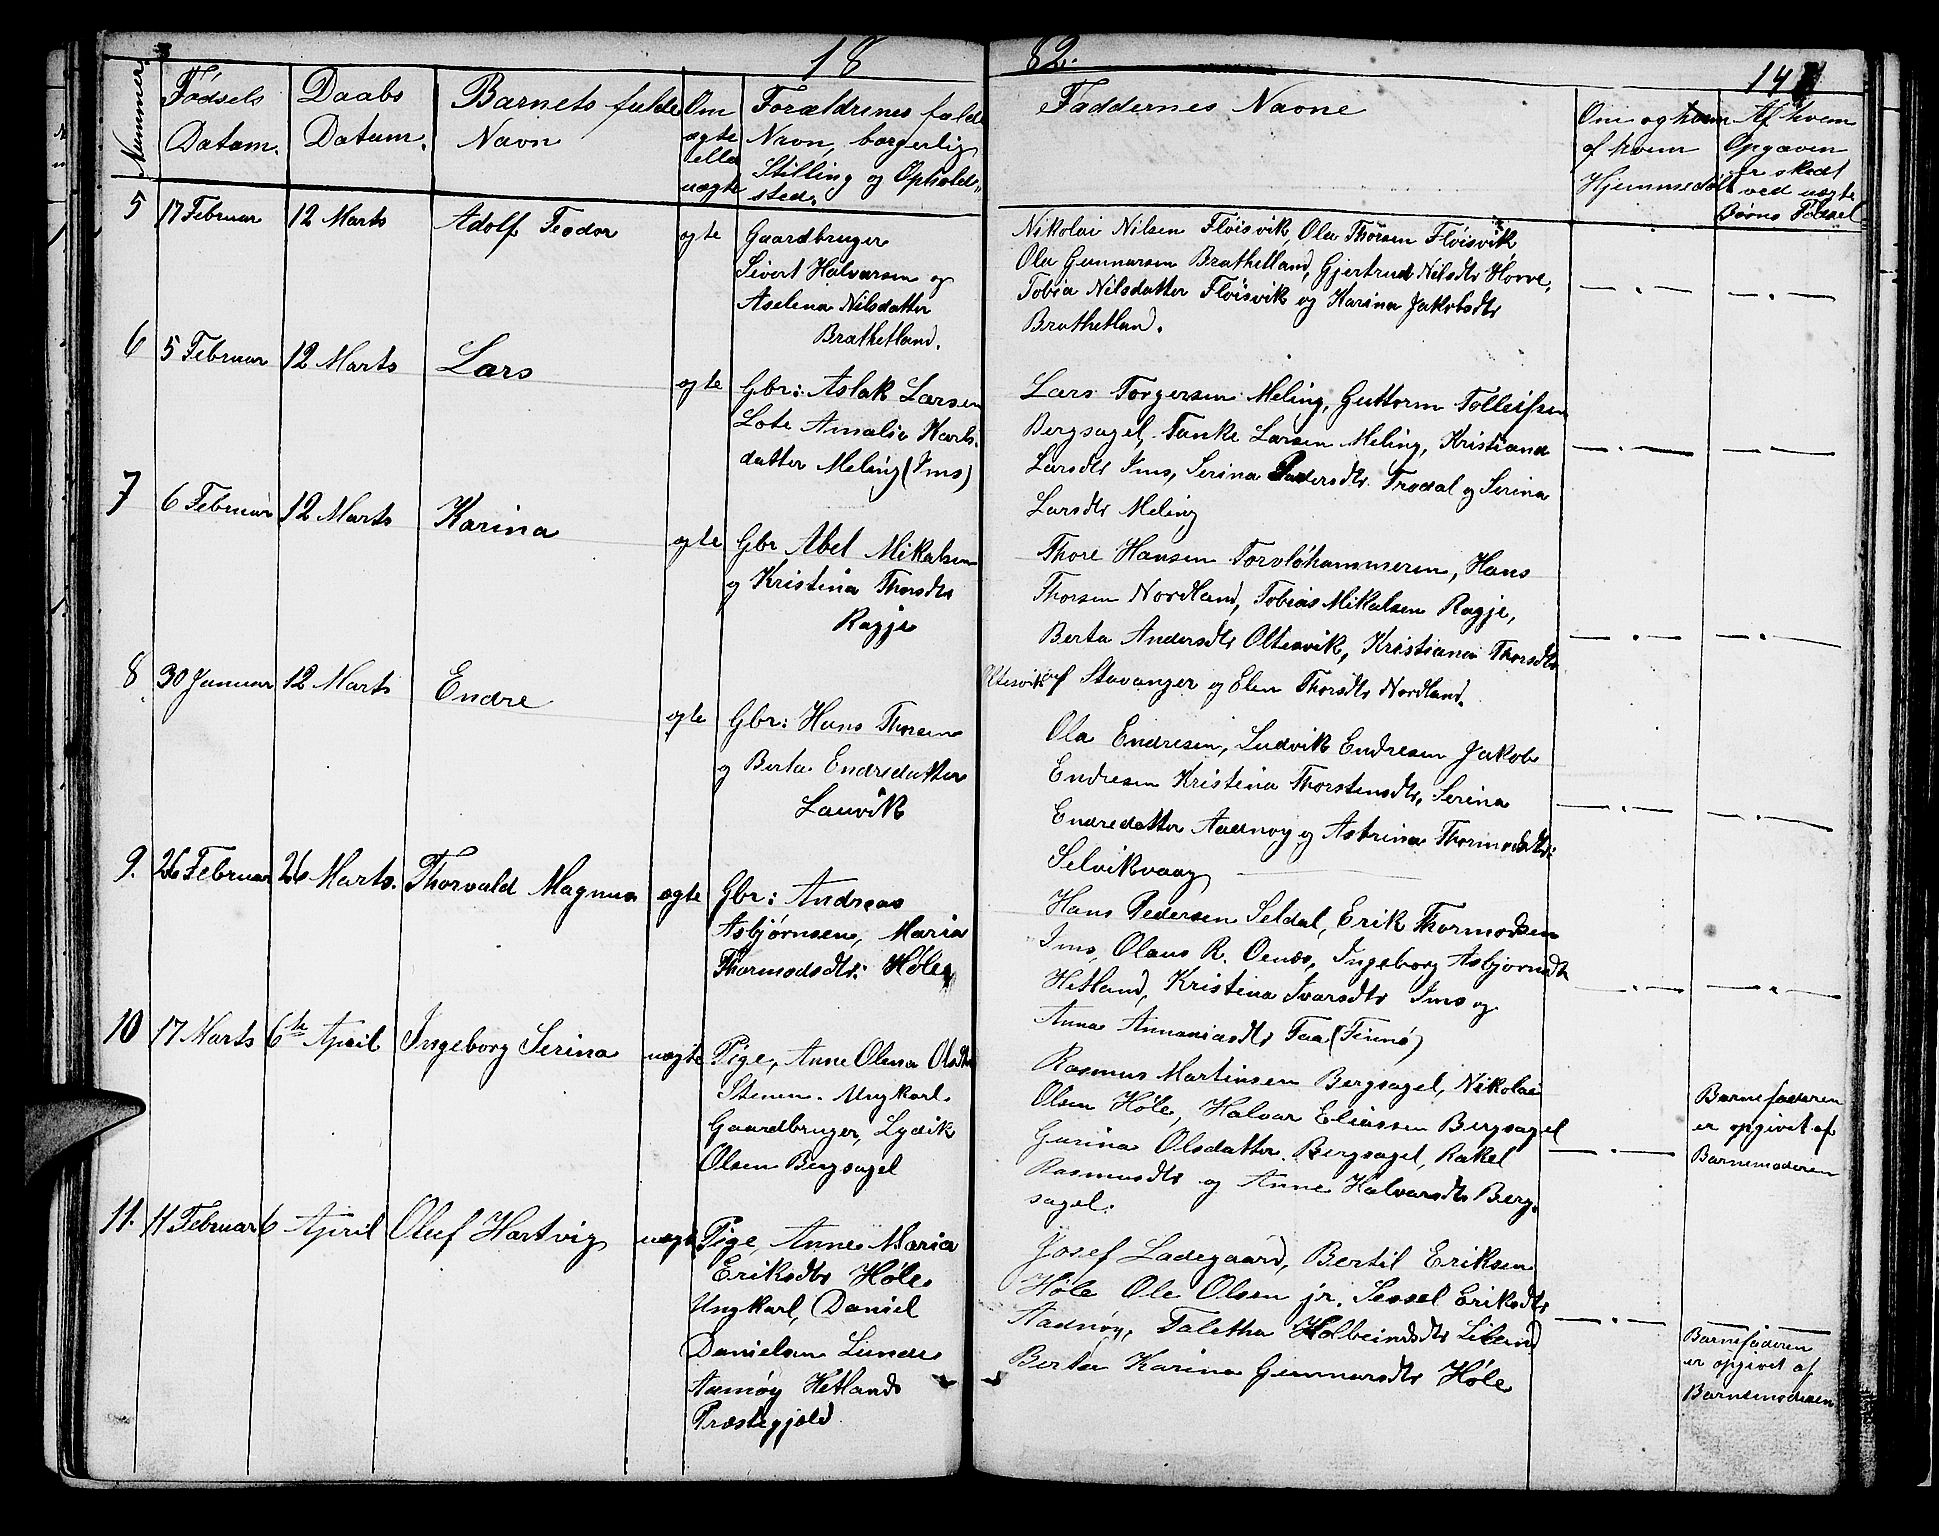 18 82.
147
Nummer
Fødsels Datum.
Daabs Datum.
Barnets fulde Navn
Om ægte eller uægte
Forældrenes fulde Navn, borgerlig Stilling og Opholdssted.
Faddernes Navne
Om og hvem af hvem Hjemmedøbt
Af hvem Opgaven er skedt ved uægte Børns Fødsel
5 17 Februar 12 Marts Adolf Teodor ægte
Gaardbruger
Sivert Halvorsen og
Aselena Nilsdatter
Brathetland.
Nikolai Nilsen Fløisvik, Ola Thorsen Fløisvik
Ola Gunnarsen Brathetland, Gjertrud Nilsdtr Horve,
Tobia Nilsdatter Fløisvik og Karina Jakobsdtr
Brathetland.
6 5 Februar 12 Marts Lars ægte
Gbr: Aslak Larsen
Lote Amalia Karls-
datter Meling (Ims)
Lars Torgersen Meling, Guttorm Tolleifsen
Bergsagel, Tanke Larsen Meling, Kristiana
Larsdtr Ims, Serina Pedersdtr Trodal og Serina
Larsdtr Meling
7 6 Februar 12 Marts Karina ægte
Gbr Abel Mikalsen
og Kristina Thorsdtr
Ragje
Thore Hansen Torvløhammeren, Hans
Thorsen Nordland, Tobias Mikalsen Ragje,
Berta Andersdtr Oltesvik, Kristiana Thorsdtr
Oltesvik af Stavanger og Elen Thorsdtr Nordland.
8 30 Januar 12 Marts Endre ægte
Gbr: Hans Thorsen
og Berta Endredatter
Lauvik
Ola Endresen, Ludvik Endresen Jakob
Endresen Kristina Thorstensdtr, Serina
Endredatter Aadnøy og Astrina Thormodsdtr:
Selvikvaag
9. 26 Februar 26 Marts. Thorvald Magnus ægte
Gbr: Andreas
Asbjørnsen, Maria
Thormodsdtr: Høle
Hans Pedersen Seldal, Erik Thormodsen
Ims, Olaus R. Oenæs, Ingeborg Asbjørnsdtr
Hetland, Kristina Ivarsdtr Ims og
Anna Annaniasdtr Faa (Finnø)
10 17 Marts 6te April Ingeborg Serina uægte
Pige, Anne Olena Olsdtr
Stenen. Ungkarl
Gaardbruger, Lydik
Olsen Bergsagel
Rasmus Martinsen Bergsagel, Nikolai
Olsen Høle, Halvar Eliassen Bergsagel
Gurina Olsdatter Bergsagel, Rakel
Rasmusdtr og Anne Halvarsdtr Berg-
sagel.
Barnefaderen
er opgivet af
Barnemoderen
11. 11 Februar 6 April Oluf Hartvig uægte
Pige, Anne Maria
Eriksdtr Høle
Ungkarl, Daniel
Danielsen Lunde
Aamøy Hetlands
Præstegjeld
Josef Ladegaard, Bertil Eriksen
Høle Ole Olsen jr. Sessel Eriksdtr
Aadnøy, Taletha Holbeindsdtr Liland
Berta Karina Gunnarsdtr Høle
Barnefaderen
er opgivet af
Barnemoderen